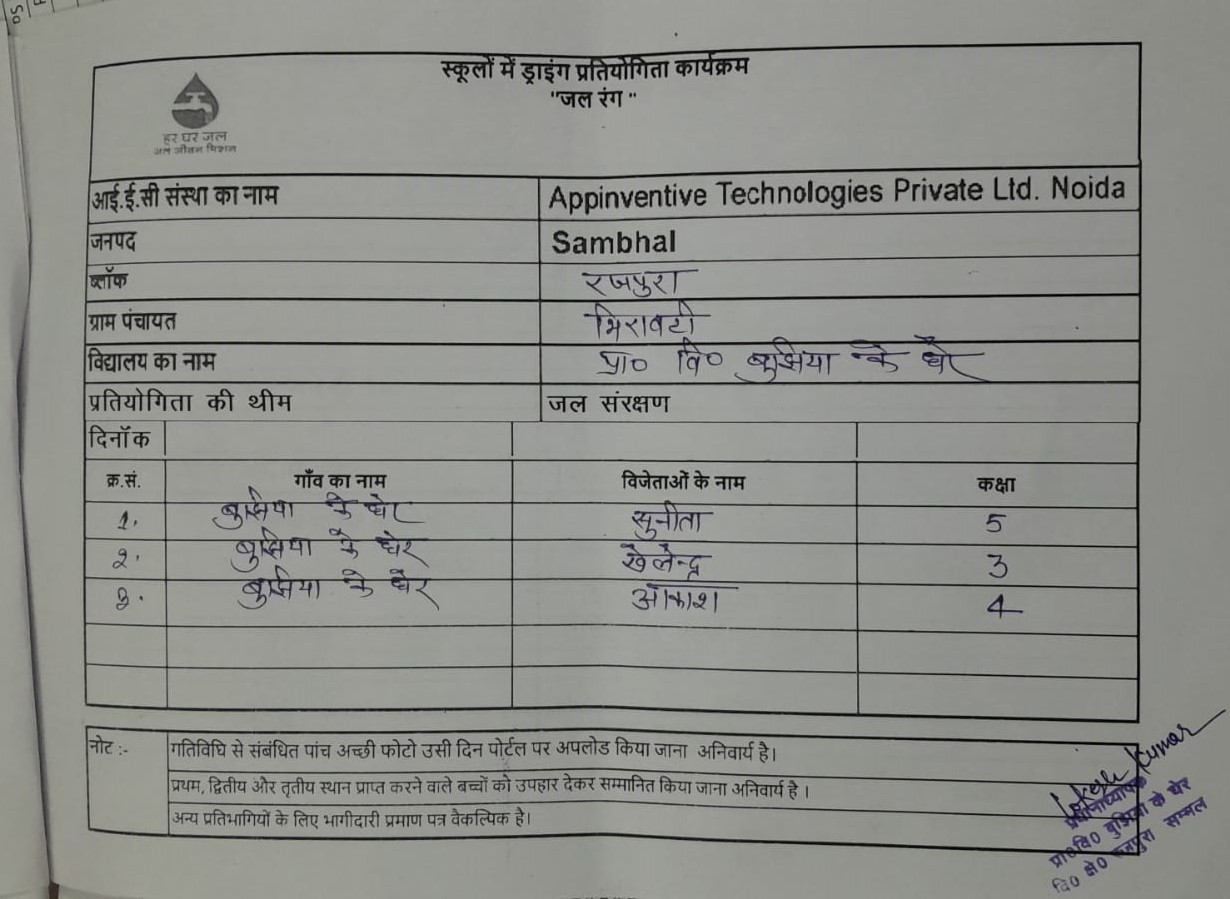 स्कूलों में ड्राइंग प्रतियोगिता कार्यक्रम
"जल रंग "
हर घर जल
जल जीवन मिशन
आई.ई.सी संस्था का नाम Appinventive Technologies Private Ltd. Noida
जनपद Sambhal
ब्लॉक रजपुरा
ग्राम पंचायत भिरावटी
विद्यालय का नाम प्रा० वि० बुझिया के घेर
प्रतियोगिता की थीम जल संरक्षण
दिनॉक
क्र.सं. गाँव का नाम विजेताओं के नाम कक्षा
1. बुझिया के घेर सुनीता 5
2. बुझिया के घेर खेलेन्द्र 3
3. बुझिया के घेर आकाश 4
नोट :- गतिविधि से संबंधित पांच अच्छी फोटो उसी दिन पोर्टल पर अपलोड किया जाना अनिवार्य है।
प्रथम, द्वितीय और तृतीय स्थान प्राप्त करने वाले बच्चों को उपहार देकर सम्मानित किया जाना अनिवार्य है ।
अन्य प्रतिभागियों के लिए भागीदारी प्रमाण पत्र वैकल्पिक है।
Kumar
प्रधानाध्यापक
प्रा०वि० बुझिया के घेर
वि० क्षे० रजपुरा सम्भल